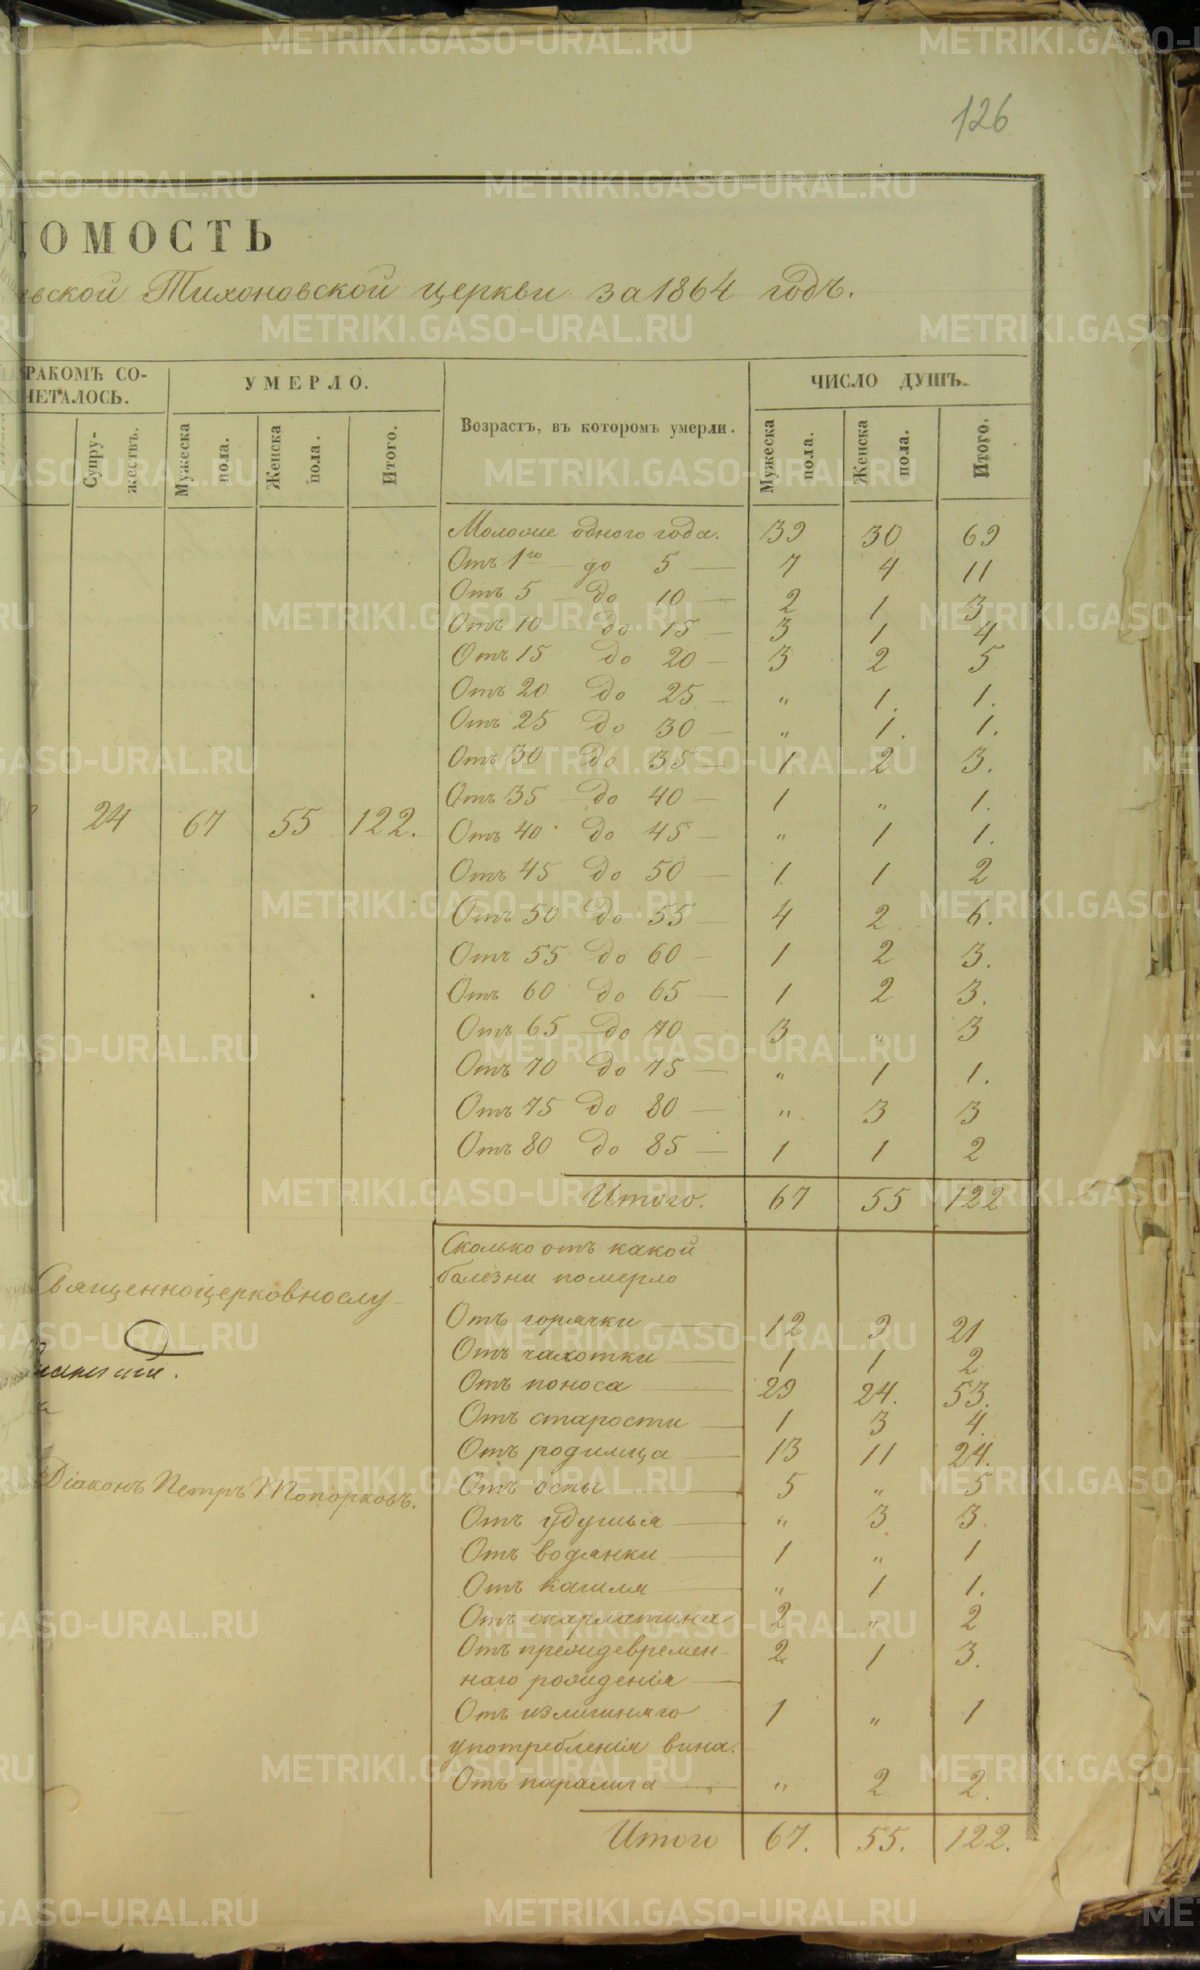 126
ОМОСТЬ
вской Тихоновской церкви за 1864 годъ.
РАКОМЪ СО-
ЧЕТАЛОСЬ.
УМЕРЛО.
Возрастъ, въ которомъ умерли.
ЧИСЛО ДУШЪ.
Супру-
жествъ.
Мужеска
пола.
Женска
пола.
Итого.
Мужеска
пола.
Женска
пола.
Итого.
24 67 55 122.
Моложе одного года. 39 30 69
Отъ 1го до 5 — 7 4 11
Отъ 5 — до 10 — 2 1 3
Отъ 10 до 15 — 3 1 4
Отъ 15 до 20 — 3 2 5
Отъ 20 до 25 — " 1. 1.
Отъ 25 до 30 — " 1. 1.
Отъ 30 до 35 — 1 2 3.
Отъ 35 до 40 — 1 " 1.
Отъ 40 до 45 — " 1 1.
Отъ 45 до 50 — 1 1 2
Отъ 50 до 55 — 4 2 6.
Отъ 55 до 60 — 1 2 3.
Отъ 60 до 65 — 1 2 3.
Отъ 65 до 70 3 " 3
Отъ 70 до 75 — " 1 1.
Отъ 75 до 80 — " 3 3
Отъ 80 до 85 — 1 1 2
Итого. 67 55 122
Сколько отъ какой
болезни померло
Отъ горячки — 12 9 21
Отъ чахотки — 1 1 2
Отъ поноса — 29 24. 53.
Отъ старости — 1 3 4.
Отъ родимца — 13 11 24.
Отъ оспы — 5 " 5
Отъ удушья — " 3 3.
Отъ водянки — 1 " 1
Отъ кашля — " 1 1.
Отъ скарлатина 2 " 2
Отъ преждевремен- 2 1 3.
наго рождения —
Отъ излишняго 1 " 1
употребления вина.
Отъ паралича — " 2 2.
Итого 67. 55. 122.
Священноцерковнослу-
Діаконъ Петръ Топорковъ.
METRIKI.GASO-URAL.RU